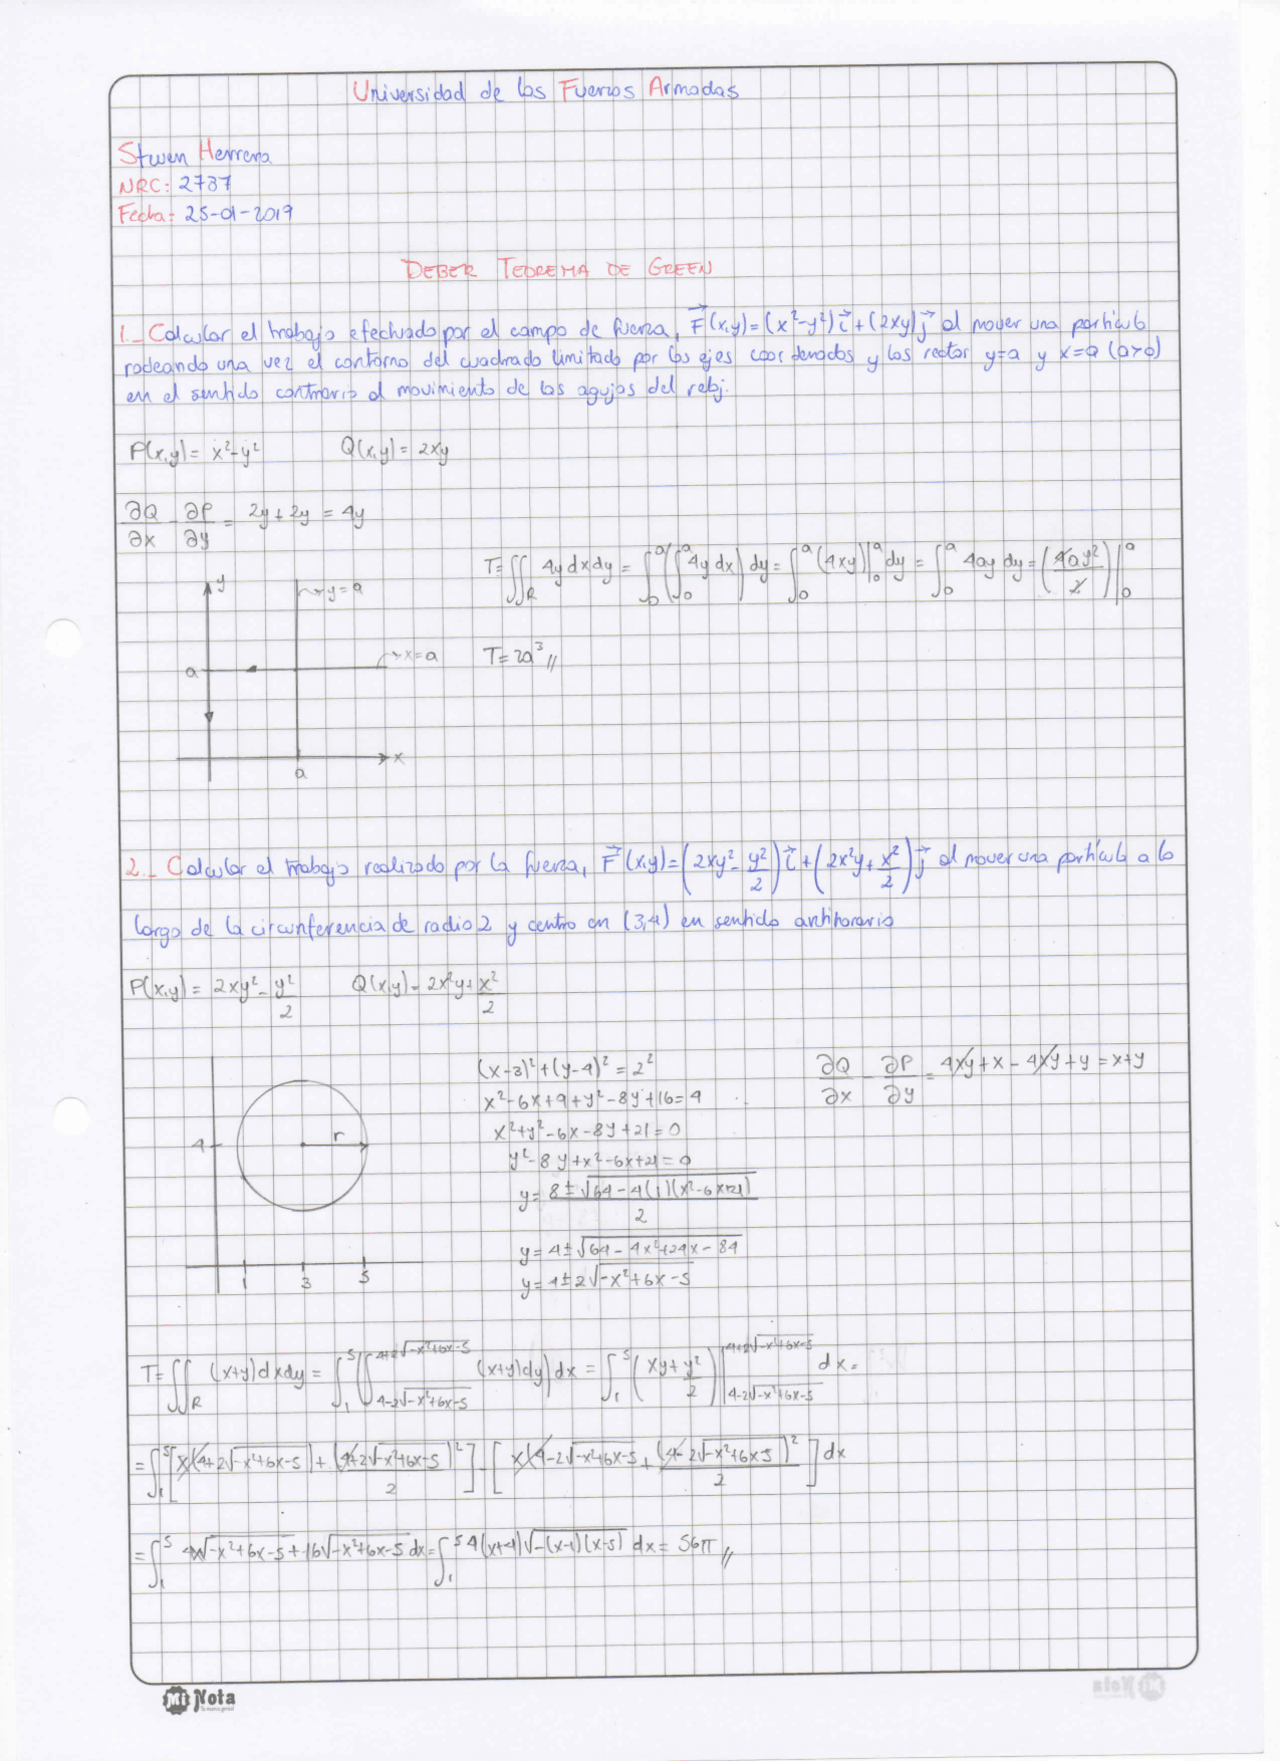 Universidad de las Fuerzas Armadas
Stwen Herrera
NRC: 2737
Fecha: 25-01-2019
DEBER TEOREMA DE GREEN
1._ Calcular el trabajo efectuado por el campo de fuerza, F⃗(x,y)=(x²-y²)i⃗+(2xy)j⃗ al mover una partícula
rodeando una vez el contorno del cuadrado limitado por los ejes coordenados y las rectas y=a y x=a (a>0)
en el sentido contrario al movimiento de las agujas del reloj.
P(x,y)= x²-y² Q(x,y)= 2xy
∂Q/∂x - ∂P/∂y = 2y+2y = 4y
T=∬_R 4y dxdy = ∫_0^a(∫_0^a 4y dx) dy = ∫_0^a (4xy)|_0^a dy = ∫_0^a 4ay dy = (4ay²/2)|_0^a
y
y=a
a
x=a
T=2a³//
x
a
2._ Calcular el trabajo realizado por la fuerza, F⃗(x,y)=(2xy²-y²/2)i⃗+(2x²y+x²/2)j⃗ al mover una partícula a lo
largo de la circunferencia de radio 2 y centro en (3,4) en sentido antihorario
P(x,y)= 2xy²-y²/2 Q(x,y)= 2x²y+x²/2
(x-3)²+(y-4)²=2² ∂Q/∂x - ∂P/∂y = 4xy+x-4xy+y=x+y
x²-6x+9+y²-8y+16=4
x²+y²-6x-8y+21=0
4 r
y²-8y+x²-6x+21=0
y= (8±√(64-4(1)(x²-6x+21)))/2
y=4±√(64-4x²+24x-84)
y=4±2√(-x²+6x-5)
1 3 5
T=∬_R (x+y)dxdy = ∫_1^5(∫_{4-2√(-x²+6x-5)}^{4+2√(-x²+6x-5)} (x+y)dy)dx = ∫_1^5 (xy+y²/2)|_{4-2√(-x²+6x-5)}^{4+2√(-x²+6x-5)} dx=
=∫_1^5[x(4+2√(-x²+6x-5))+(4+2√(-x²+6x-5))²/2]-[x(4-2√(-x²+6x-5)+(4-2√(-x²+6x5))²/2]dx
=∫_1^5 4x√(-x²+6x-5)+16√(-x²+6x-5)dx=∫_1^5 4(x+4)√(-(x-1)(x-5)) dx= 56π//
Mi Nota